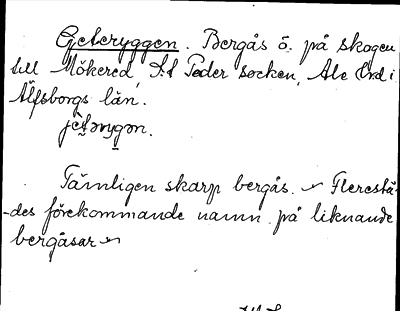 Geteryggen. Bergås ö. på skogen
till Mökered, S:t Peder socken, Ale hd i
Älfsborgs län.
jèt̬ərygən.
Tämligen skarp bergås. ~ Flerestä-
-des förekommande namn på liknande
bergåsar ~